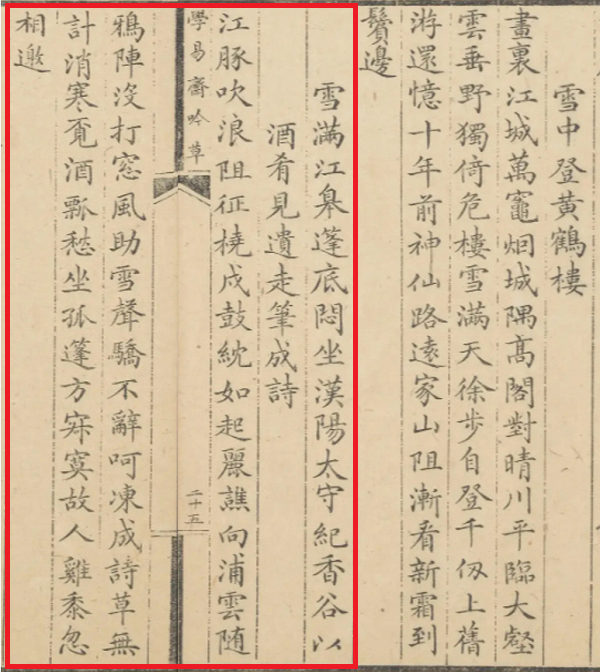 雪中登黃鶴樓
畫裏江城萬竈烟城隅高閣對晴川平臨大壑
雲垂野獨倚危樓雪滿天徐步自登千仭上舊
游還憶十年前神仙路遠家山阻漸看新霜到
鬢邊
雪滿江皐蓬底悶坐漢陽太守紀香谷以
酒肴見遺走筆成詩
江豚吹浪阻征橈戍鼓紞如起麗譙向浦雲隨
學易齋吟草
二十五
鴉陣沒打窓風助雪聲驕不辭呵凍成詩草無
計消寒覔酒瓢愁坐孤篷方寂寞故人雞黍忽
相邀